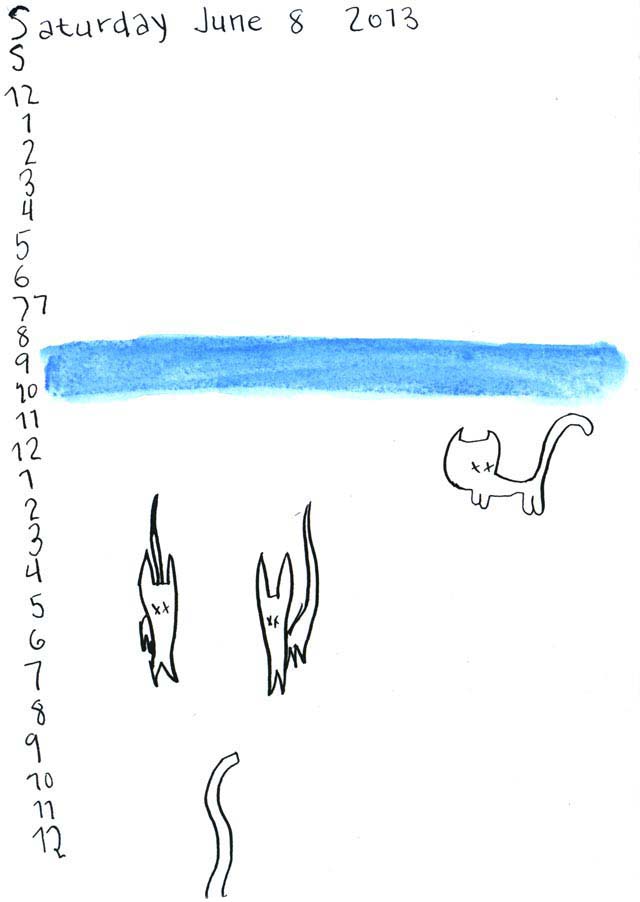 Saturday June 8 2013
S
12
1
2
3
4
5
6
77
8
9
10
11
12
1
2
3
4
5
6
7
8
9
10
11
12